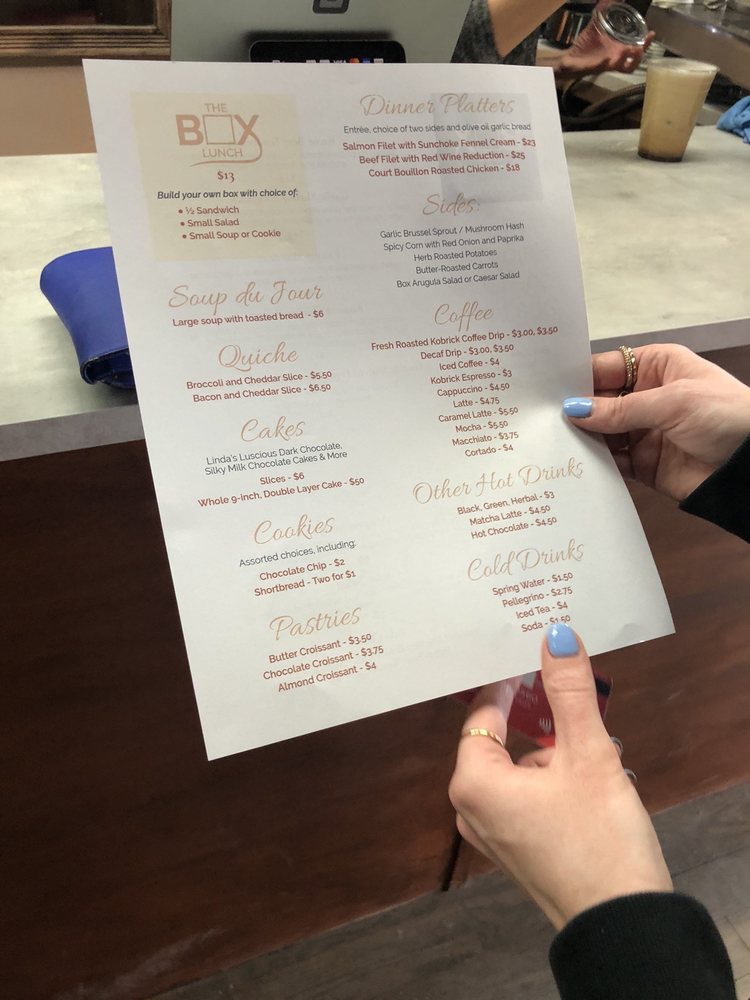 THE
BOX
LUNCH
$13
Build your own box with choice of:
• ½ Sandwich
• Small Salad
• Small Soup or Cookie
Soup du Jour
Large soup with toasted bread - $6
Quiche
Broccoli and Cheddar Slice - $5.50
Bacon and Cheddar Slice - $6.50
Cakes
Linda's Luscious Dark Chocolate,
Silky Milk Chocolate Cakes & More
Slices - $6
Whole 9-inch, Double Layer Cake - $50
Cookies
Assorted choices, including:
Chocolate Chip - $2
Shortbread - Two for $1
Pastries
Butter Croissant - $3.50
Chocolate Croissant - $3.75
Almond Croissant - $4
Dinner Platters
Entrée, choice of two sides and olive oil garlic bread
Salmon Filet with Sunchoke Fennel Cream - $23
Beef Filet with Red Wine Reduction - $25
Court Bouillon Roasted Chicken - $18
Sides:
Garlic Brussel Sprout / Mushroom Hash
Spicy Corn with Red Onion and Paprika
Herb Roasted Potatoes
Butter-Roasted Carrots
Box Arugula Salad or Caesar Salad
Coffee
Fresh Roasted Kobrick Coffee Drip - $3.00, $3.50
Decaf Drip - $3.00, $3.50
Iced Coffee - $4
Kobrick Espresso - $3
Cappuccino - $4.50
Latte - $4.75
Caramel Latte - $5.50
Mocha - $5.50
Macchiato - $3.75
Cortado - $4
Other Hot Drinks
Black, Green, Herbal - $3
Matcha Latte - $4.50
Hot Chocolate - $4.50
Cold Drinks
Spring Water - $1.50
Pellegrino - $2.75
Iced Tea - $4
Soda - $1.50